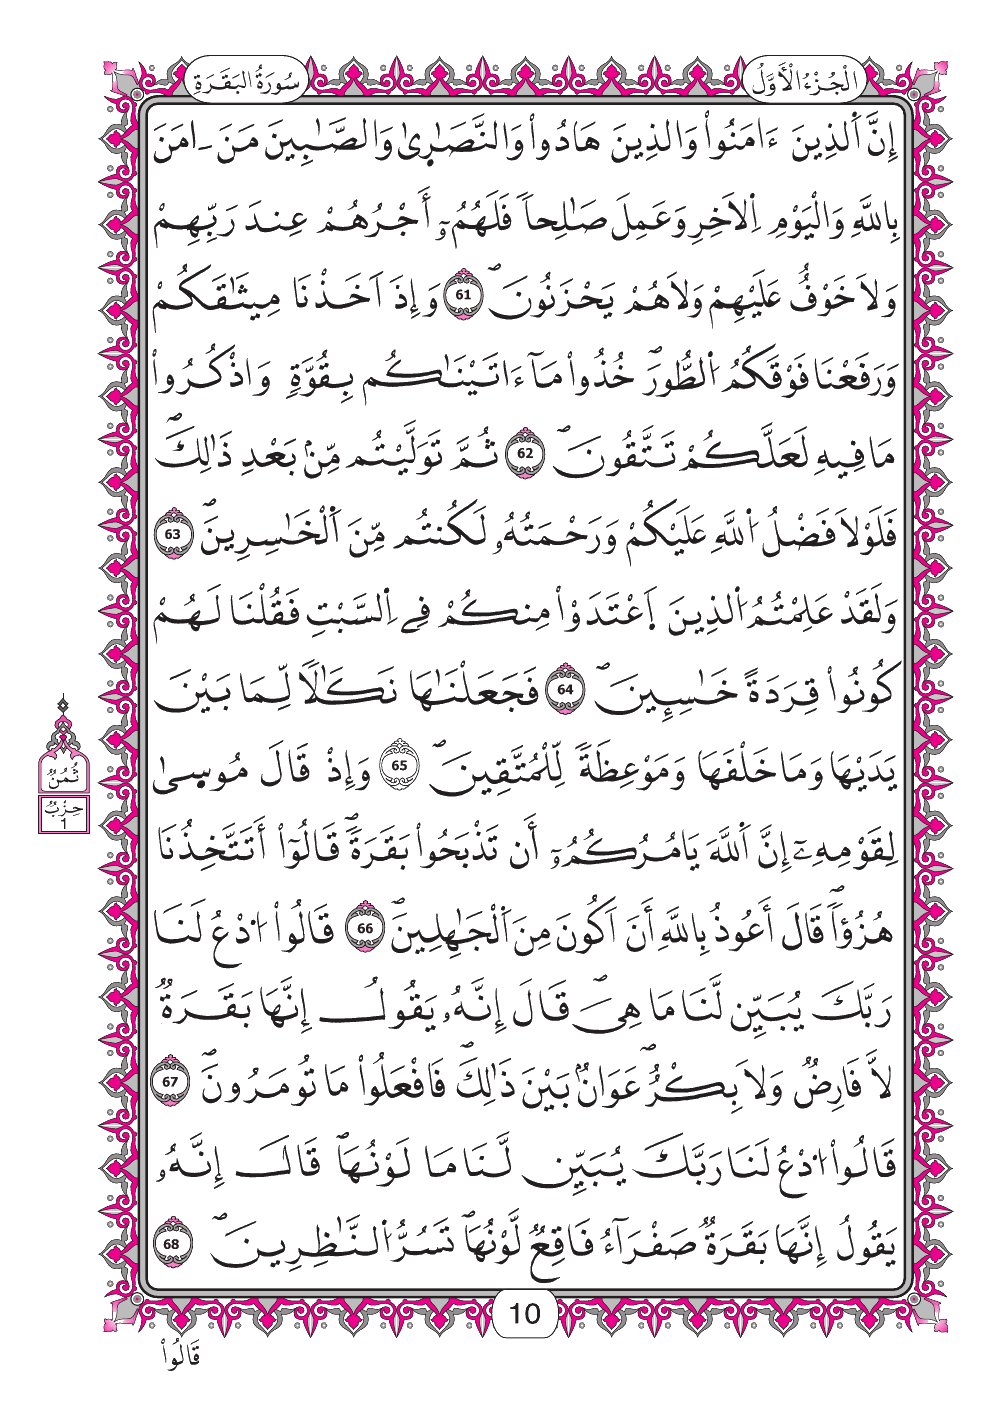 الْجُزْءُ الْأَوَّلُ
سُورَةُ الْبَقَرَةِ
إِنَّ اَ۬لذِينَ ءَامَنُواْ وَالذِينَ هَادُواْ وَالنَّصَٰر۪يٰ وَالصَّٰبِينَ مَنَ اٰمَنَ
بِاللَّهِ وَالْيَوْمِ اِ۬لَاخِرِ وَعَمِلَ صَٰلِحاٗ فَلَهُمُۥٓ أَجْرُهُمْ عِندَ رَبِّهِمْ
وَلَا خَوْفٌ عَلَيْهِمْ وَلَا هُمْ يَحْزَنُونَۖ 61 وَإِذَ اَخَذْنَا مِيثَٰقَكُمْ
وَرَفَعْنَا فَوْقَكُمُ اُ۬لطُّورَۖ خُذُواْ مَآ ءَاتَيْنَٰكُم بِقُوَّةٖ وَاذْكُرُواْ
مَا فِيهِ لَعَلَّكُمْ تَتَّقُونَۖ 62 ثُمَّ تَوَلَّيْتُم مِّنۢ بَعْدِ ذَٰلِكَۖ
فَلَوْلَا فَضْلُ اُ۬للَّهِ عَلَيْكُمْ وَرَحْمَتُهُۥ لَكُنتُم مِّنَ اَ۬لْخَٰسِرِينَۖ 63
وَلَقَدْ عَلِمْتُمُ اُ۬لذِينَ اَ۪عْتَدَوْاْ مِنكُمْ فِے اِ۬لسَّبْتِ فَقُلْنَا لَهُمْ
كُونُواْ قِرَدَةً خَٰسِـِٕينَۖ 64 فَجَعَلْنَٰهَا نَكَٰلاٗ لِّمَا بَيْنَ
يَدَيْهَا وَمَا خَلْفَهَا وَمَوْعِظَةٗ لِّلْمُتَّقِينَۖ 65 وَإِذْ قَالَ مُوس۪يٰ
لِقَوْمِهِۦٓ إِنَّ اَ۬للَّهَ يَامُرُكُمُۥٓ أَن تَذْبَحُواْ بَقَرَةٗۖ قَالُوٓاْ أَتَتَّخِذُنَا
هُزُؤاٗۖ قَالَ أَعُوذُ بِاللَّهِ أَنَ اَكُونَ مِنَ اَ۬لْجَٰهِلِينَۖ 66 قَالُواْ اُ۟دْعُ لَنَا
رَبَّكَ يُبَيِّن لَّنَا مَا هِيَۖ قَالَ إِنَّهُۥ يَقُولُ إِنَّهَا بَقَرَةٞ
لَّا فَارِضٞ وَلَا بِكْرٌۖ عَوَانٌۢ بَيْنَ ذَٰلِكَۖ فَافْعَلُواْ مَا تُومَرُونَۖ 67
قَالُواْ اُ۟دْعُ لَنَا رَبَّكَ يُبَيِّن لَّنَا مَا لَوْنُهَاۖ قَالَ إِنَّهُۥ
يَقُولُ إِنَّهَا بَقَرَةٞ صَفْرَآءُ فَاقِعٞ لَّوْنُهَاۖ تَسُرُّ اُ۬لنَّٰظِرِينَۖ 68
ثُمُنٌ
حِزْبٌ
1
10
قَالُواْ